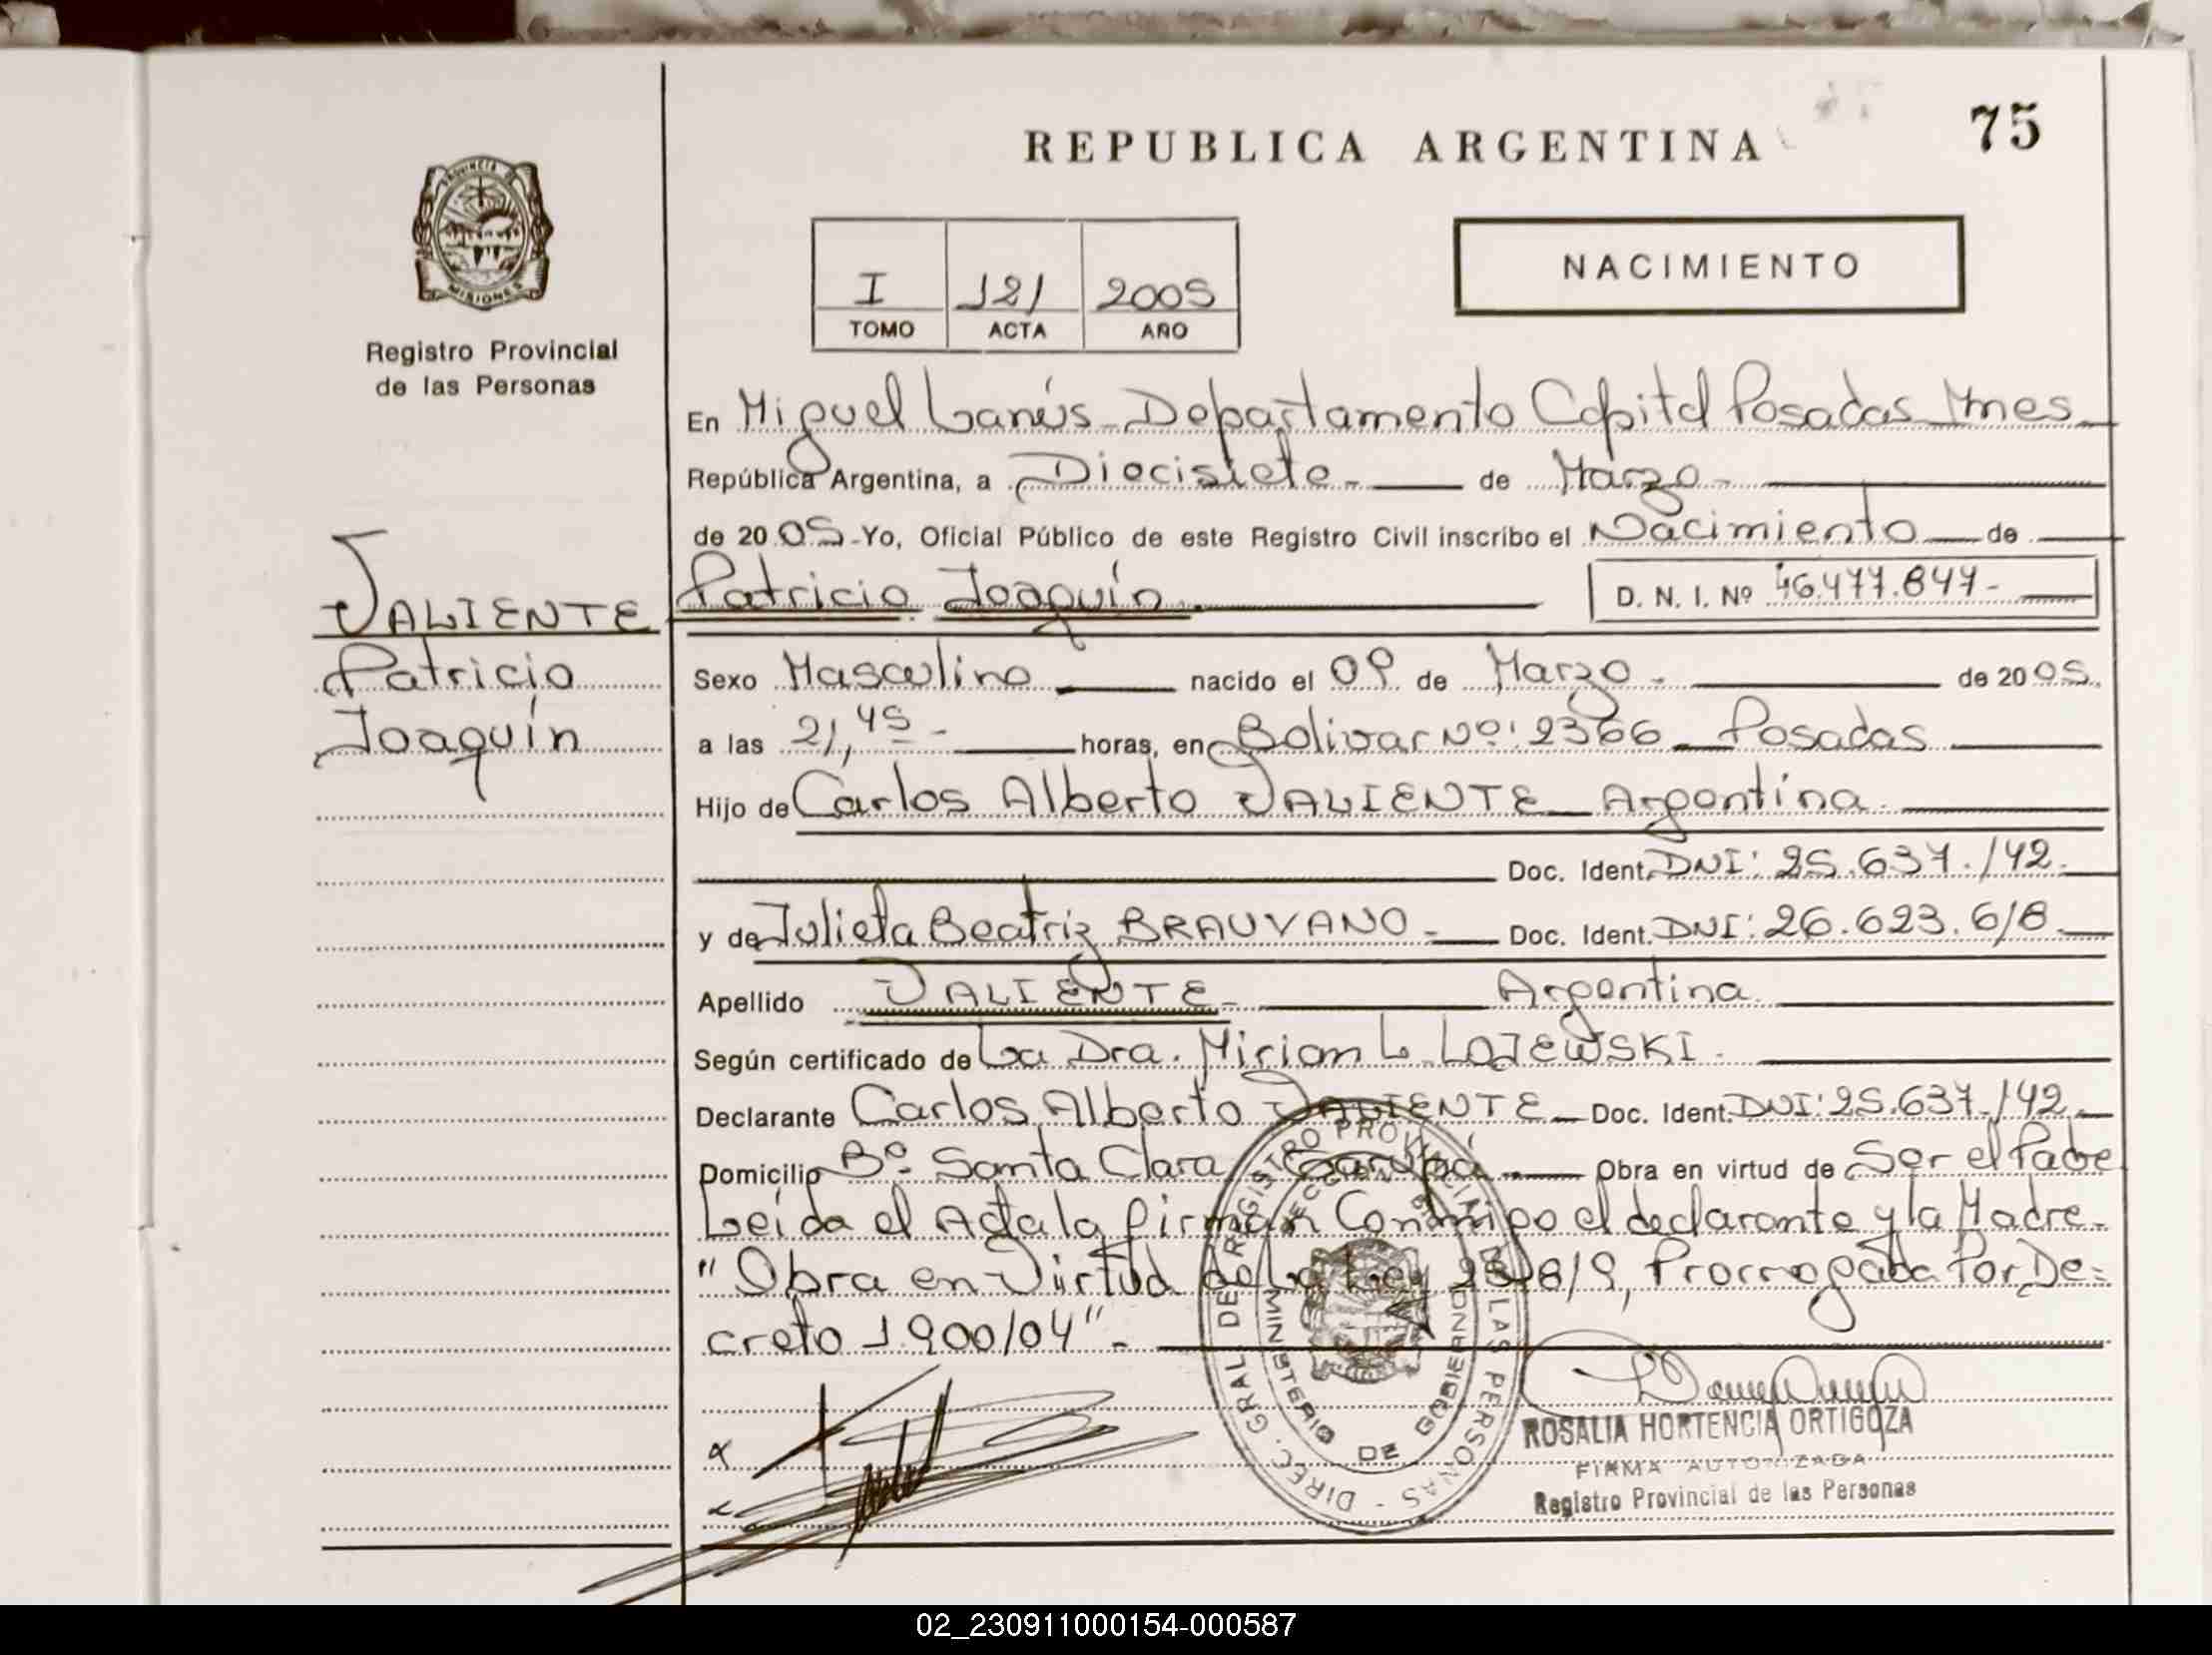 75
REPUBLICA ARGENTINA
PROVINCIA DE
MISIONES
Registro Provincial
de las Personas
I 121 2005
TOMO ACTA AÑO
NACIMIENTO
En Miguel Lanús - Departamento Capital Posadas Mnes
República Argentina, a Diecisiete - de Marzo -
de 2005 - Yo, Oficial Público de este Registro Civil inscribo el Nacimiento de
VALIENTE Patricio Joaquín. D. N. I. Nº 46.477.847-
Patricio
Joaquín
Sexo Masculino nacido el 09 de Marzo - de 2005.
a las 21,45 - horas, en Bolivar Nº: 2366 - Posadas
Hijo de Carlos Alberto VALIENTE - Argentina.
Doc. Ident. DNI: 25.637.142.
y de Julieta Beatriz BRAUVANO - Doc. Ident. DNI: 26.623.618.
Apellido VALIENTE - Argentina.
Según certificado de La Dra. Miriam L. LOJEWSKI.
Declarante Carlos Alberto VALIENTE - Doc. Ident. DNI: 25.637.142.
Domicilio Bº Santa Clara, Garupá - Obra en virtud de Ser el Padre
Leída el Acta la firman Conmigo el declarante y la Madre.
"Obra en Virtud de la Ley 23.819, Prorrogada Por De-
creto 1.900/04" -
DIREC. GRAL. DE REGISTRO PROVINCIAL DE LAS PERSONAS -
MINISTERIO DE GOBIERNO
ROSALIA HORTENCIA ORTIGOZA
FIRMA AUTORIZADA
Registro Provincial de las Personas
02_230911000154-000587